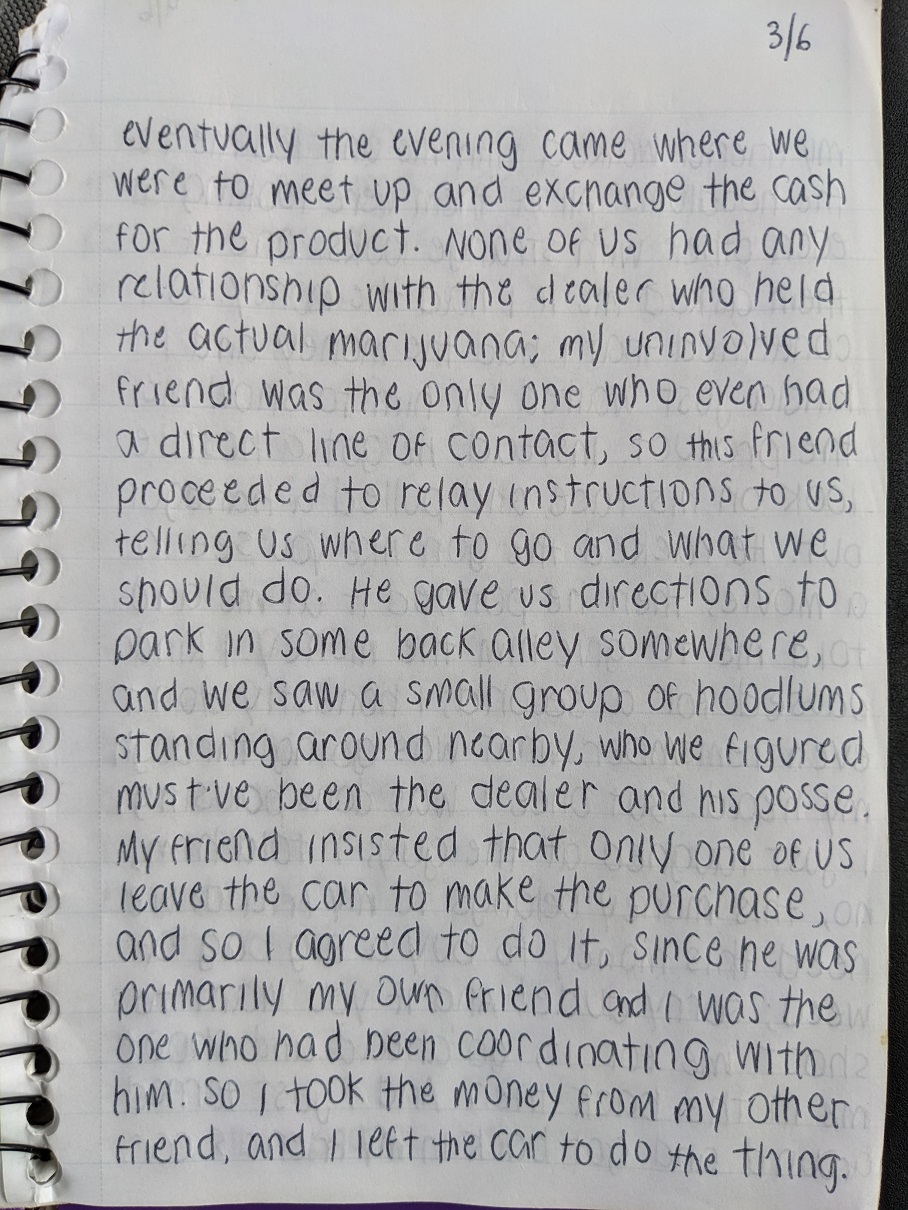 3/6
eventually the evening came where we
were to meet up and exchange the cash
for the product. None of us had any
relationship with the dealer who held
the actual marijuana; my uninvolved
friend was the only one who even had
a direct line of contact, so this friend
proceeded to relay instructions to us,
telling us where to go and what we
should do. He gave us directions to
park in some back alley somewhere,
and we saw a small group of hoodlums
standing around nearby, who we figured
must've been the dealer and his posse.
My friend insisted that only one of us
leave the car to make the purchase,
and so I agreed to do it, since he was
primarily my own friend and I was the
one who had been coordinating with
him. So I took the money from my other
friend, and I left the car to do the thing.